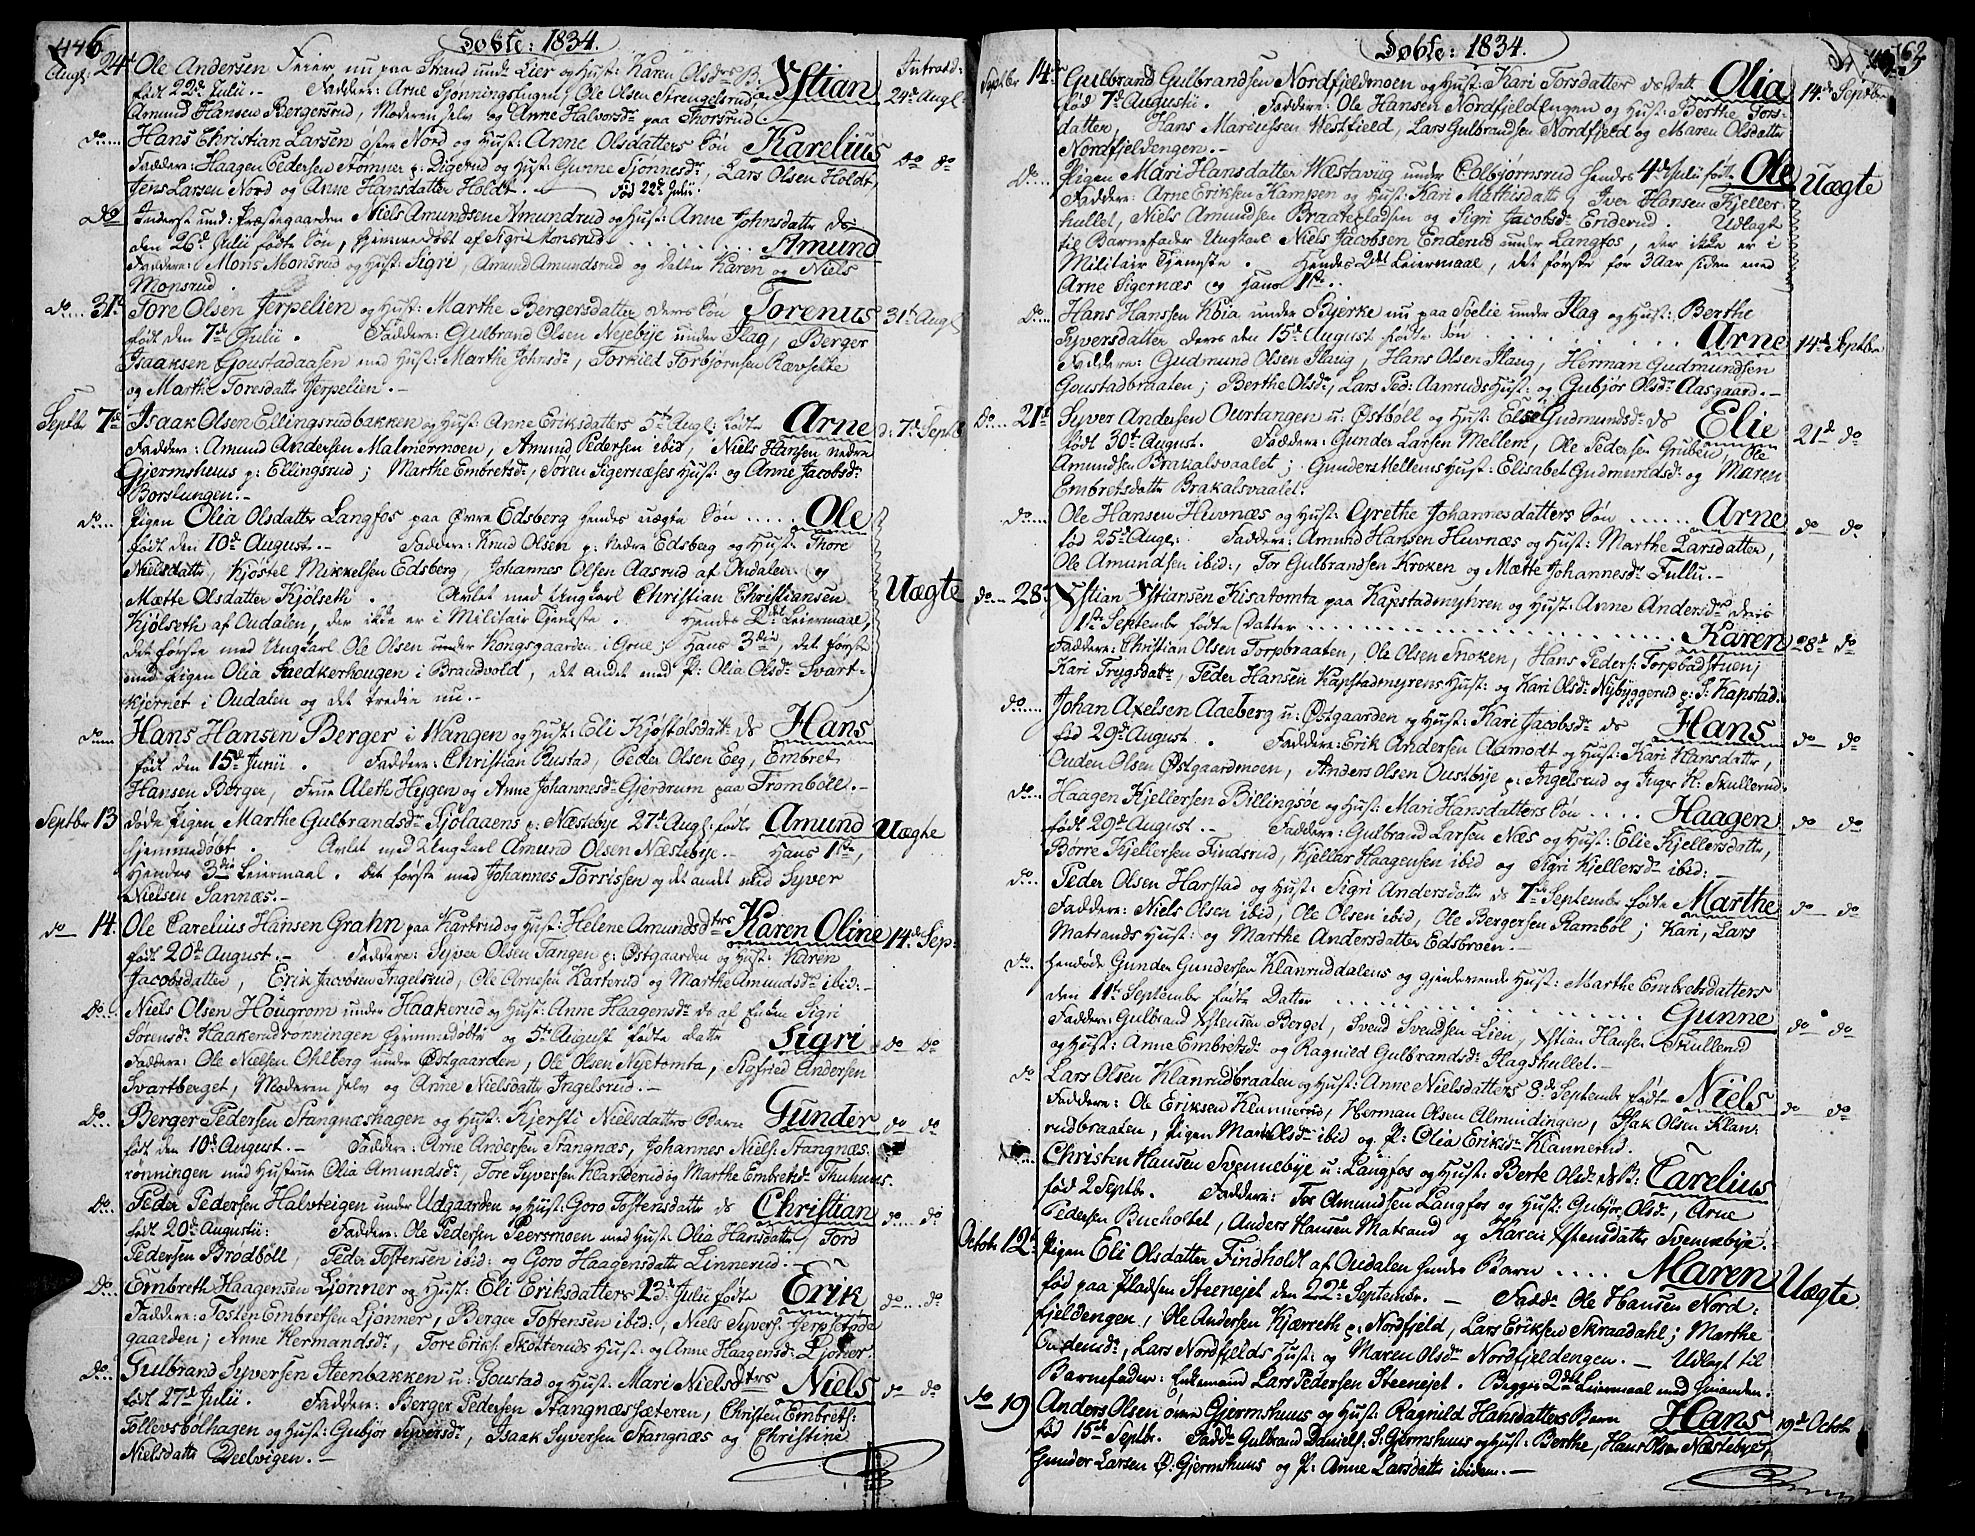 446
Døbte: 1834.
Augl: 24d Ole Andersen Feier nu paa Strand under Lier og Hust: Karen Olsdrs B.
født 22de Julii. Faddere: Arne Ole Olsen Ystian Introd: 24d Augl
Amund Hansen Bergersrud, Moderen selv og Anne Halvorsdr paa Thorsrud.
do Hans Christian Larsen øfre Nord og Hust: Anne Olsdatters Søn Karelius do do
Faddere: Haagen Pedersen Stomner p: Digerud og Hust: Gunne Lars Olsen Holdt,
Jens Larsen Nord og Anne Hansdatter Holdt. Fød 22de Julii.
Do Inderst und: Præstegaarden Niels Amundsen Amundrud og Hust: Anne Johnsdatter ds
den 26d Julii fødte Søn, hjemmedøbt af Sigri Monsrud Amund
Faddere: Mons Monsrud og Hust: Sigri, Amund Amundsrud og Datter Karen og Niels
Monsrud.
do 31d Tore Olsen Jerpelien og Hust: Marthe Bergersdatter, deres Søn Torenus 31d Augl
født den 7d Julii. Faddere: Gulbrand Olsen Nyebye under Flag, Berger
Isaaksen Goustadaasen med Hust: Marthe Johnsdr, Torkild Torbjørnsen Rævholte
og Marthe Toresdatt Jerpelien.
Septbr 7de Isaak Olsen Ellingsrudbakken og Hust: Anne Eriksdatters 5t Augl: fødte Arne d: 7d Septb
Faddere: Amund Andersen Malmermoen, Amund Pedersen ibid, Niels Hansen nedre
Gjermshuus p: Ellingsrud; Marthe Embretsdr, Søren Sigernæses Hust: og Anne Jacobsdr
Borslungen.
do Pigen Olia Olsdatter Langfos paa Øvre Edsberg hendes uægte Søn Ole
født den 10d August. Faddere: Knud Olsen p: nedre Edsberg og Hust: Thore
Nielsdatter, Kjøstel Mikkelsen Edsberg, Johannes Olsen Aasrud af Oudalen og
Mætte Olsdatter Kjølseth. Avlet med Ungkarl Christian Christiansen Uægte
Kjølseth af Oudalen, der ikke er i Militair Tjeneste. Hendes 2det Leiermaal,
det første med Ungkarl Ole Olsen under Kongsgaarden i Grue; Hans 3die, det første
med Pigen Olia Sædkerhougen i Brandvold, det andet med P: Olia Olsdr Svart-
kjernet i Oudalen og det tredie nu.
do Hans Hansen Berger i Wangen og Hust: Eli Kjøstolsdatt ds Hans
født den 15d Junii. Faddere: Christian Rustad, Peder Olsen Eeg, Embret
Hansen Berger, Frue Aleth Heggen og Anne Johannesdr Gjerdrum paa Tromböl.
Septbr 13 døde Pigen Marthe Gulbrandsdr Sjølaaens p: Næstebye 27d Augl: fødte Amund Uægte
hjemmedøbt. Avlet med Ungkarl Amund Olsen Næstebye. Hans 1ste,
Hendes 3die Leiermaal. Det første med Johannes Torrissen og det andet med Syver
Nielsen Sannæs.
do 14. Ole Carelius Hansen Grahn paa Kartrud og Hust: Helene Amundsdtrs Karen Oline 14d Sep:
født 20d August. Faddere: Syver Olsen Tangen p: Østgaarden og Hust: Karen
Jacobsdatter, Erik Jacobsen Ingelsrud, Ole Arnesen Karterud og Marthe Amundsdr ibid:
Do. Niels Olsen Hougrom under Haakerud og Hust: Anne Haagensdr ds af Sigri
Sørensdr Haakerudrønningen hjemmedøbte og 5t August fødte Datt Sigri do do
Faddere: Ole Nielsen Ohlberg under Østgaarden, Ole Olsen Nyetomta, Sigfried Andersen
Svartberget, Moderen selv og Anne Nielsdatter Ingelsrud.
Do. Berger Pedersen Stangnæshagen og Hust: Kjersti Nielsdatters Barn Gunder do do
født den 10d August. Faddere: Arne Andersen Stangnæs, Johannes Niels: Stangnæs
rønningen med Hustrue Olia Amundsdr, Tore Syversen Klarderud og Marthe Embretsdr Thuhuus.
Do. Peder Pedersen Halvteigen under Udgaarden og Hust: Goro Tostensdatter ds Christian do do
født 20d Augustii: Faddere: Ole Pedersen Peersmoen med Hust: Olia Hansdatter, Tord
Pedersen Brodböll, Peder Tostensen ibid: og Goro Haagensdatt Linnerud.
Do. Embreth Haagensen Ljønner og Hust: Eli Eriksdatters 23d Julii fødte Erik do do
Faddere: Tosten Embretsen Ljønner, Berger Tostensen ibid:, Niels Syvers: Jerpset
gaarden; Anne Hermandsdr, Tore Eriks: Skotteruds Hust: og Anne Haagensdr Ljønner.
do. Gulbrand Syversen Steenbakken u: Goustad og Hust: Mari Nielsdtrs Niels do do
født 27d Julii. Faddere: Berger Pedersen Stangnæssæteren, Christen Embrets:
Tollevsbölhagen og Hust: Gubjør Syversdr, Isaak Syversen Stangnæs og Christine
Nielsdatter Deelvigen.
Døbte: 1834.
163
Septbr 14de Gulbrand Gulbrandsen Nordfjeldmoen og Hust: Kari Torsdatter ds Datt Olia 14de Septbr
fød 7d Augustii. Faddere: Ole Hansen Nordfjeldengen og Hust: Berthe Tors-
datter, Hans Mariussen Westfield, Lars Gulbrandsen Nordfjeld og Maren Olsdatter
Nordfjeldengen.
Do. Pigen Mari Hansdatter Wæstavug under Colbjørnsrud hendes 4d Julii fødte Ole Uægte
Faddere: Arne Eriksen Kampen og Hust: Kari Mathisdatter, Iver Hansen Kjeller
hullet, Niels Amundsen Braatepladsen og Sigri Jacobsdr Enderud. Udlagt
til Barnefader Ungkarl Niels Jacobsen Enderud under Langfos, der ikke er i
Militair Tjeneste. Hendes 2det Leiermaal, det første for 3 Aar siden med
Arne Sigernæs og hans 1ste.
Do. Hans Hanssen Kbia under Bjerke nu paa Søelie under Hag og Hust: Berthe
Syversdatter deres den 15d August fødte Søn Arne 14d Septbr
Faddere: Gudmund Olsen Haug, Hans Olsen Haug, Herman Gudmundsen
Goustadbraaten; Berthe Olsdr, Lars Ped: Aanruds Hust: og Gubjør Olsdr Aasgaard.
Do. 21d Syver Andersen Ourtangen u: Østböll og Hust: Else Gudmundsdr ds Elie 21d do
født 30d August. Faddere: Gunder Larsen Mellem, Ole Pedersen Gruben, Ole
Amundsen Brakalsvaalet; Gunders Mellems Hust: Elisabet Gudmundsdr og Maren
Embretsdatter Brakalsvaalet.
do. Ole Hansen Huvnæs og Hust: Grethe Johannesdatters Søn Arne do do
fød 25d Augl: Faddere: Amund Hansen Huvnæs og Hust: Marthe Larsdatter,
Ole Amundsen ibid:, Tor Gulbrandsen Kroken og Mætte Johannesdr Fullu.
do 28d Ystian Ystiansen Kisatomta paa Kapstadmyhren og Hust: Anne Andersdr deres
1ste Septembr fødte Datter Karen 28d do
Faddere: Christian Olsen Torpbraaten, Ole Olsen Snoken, Hans Peders: Torpbadstuen,
Kari Trygsdtr, Peder Hansen Kapstadmyrens Hust: og Kari Olsdr Nybyggerud p: S: Kapstad
do. Johan Axelsen Aaeberg u: Østgaarden og Hust: Kari Jacobsdr ds Hans do do
fød 29d August. Faddere: Erik Andersen Aamodt og Hust: Kari Hansdatter,
Ouden Olsen Østgaardmoen, Anders Olsen Oustbye p: Ingelsrud og Inger H: Skullerud:
do. Haagen Kjellersen Billingsøe og Hust: Mari Hansdatters Søn Haagen do do
født 29d August. Faddere: Gulbrand Larsen Næs og Hust: Elie Kjellersdatter,
Børre Kjellersen Findsrud, Kjellar Haagensen ibid og Sigri Kjellersdr ibid:
do. Peder Olsen Harstad og Hust: Sigri Andersdatter ds 7de September fødte Marthe do do
Faddere: Niels Olsen ibid, Ole Olsen ibid, Ole Bergersen Ramböl; Kari, Lars
Matrands Hust: og Marthe Andersdatter Edsbroen.
do. Hendøde Gunder Gundersen Klanruddalens og gjenlevende Hust: Marthe Embretsdatters
den 11te September fødte Datter Gunne do do
Faddere: Gulbrand Ystensen Berget, Svend Svendsen Lien, Ystian Hansen Skullerud
og Hust: Anne Embretsdr og Ragnild Gulbrandsdr Hagshullet.
do Lars Olsen Klanrudbraaten og Hust: Anne Nielsdatters 8d Septembr fødte Niels do do
Faddere: Ole Eriksen Klannerud, Herman Olsen Almindingen, Isak Olsen Klan-
rudbraaten, Pigen Mari Olsdr ibid og P: Olia Eriksdr Klannerud.
Christen Hansen Svennebye u: Langfos og Hust: Berte Olsdr ds B: Carelius
fød 2 Septbr. Faddere: Tor Amundsen Langfos og Hust: Gubjør Olsdr, Arne
Pedersen Bucholtet, Anders Hansen Matrand og Karen Ystensdatter Svennebye.
Octobr 12d Pigen Eli Olsdatter Findholdt af Oudalen hendes Barn Maren Uægte
fød paa Pladsen Steenejet den 22d Septembr. Faddr Ole Hansen Nord-
fjeldengen, Ole Andersen Kjærreth p: Nordfjeld, Lars Eriksen Skraadahl; Marthe
Oudensdr, Lars Nordfjelds Hust: og Maren Olsdr Nordfjeldengen. Udlagt til
Barnefader: Enkemand Lars Pedersen Steenejet. Begges 2det Leiermaal med hinanden.
do 19 Anders Olsen øvre Gjermshuus og Hust: Ragnild Hansdatters Barn Hans 19d Octobr
fød 15d Septbr. Faddr Gulbrand Daniels: S: Gjermshuus og Hust: Berthe, Hans Olsen Næstebye,
Gunder Larsen Ø: Gjermshuus og P: Anne Larsdatter ibidem.